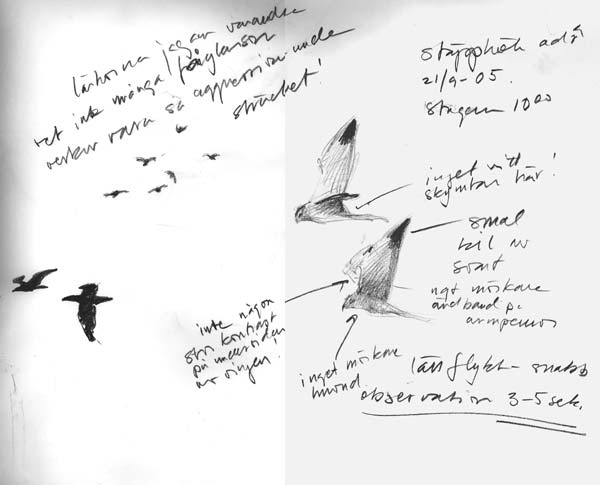 lärkorna jagar varandra
vet inte många fåglar som
verkar vara så aggressiva under
sträcket!
stäpphök ad ♂
21/9-05.
Stugan 10 00
inget vitt
skymtar här!
smal
kil av
svart
ngt mörkare
ändband på
armpennor
inte någon
stor kontrast
på undersidan
av vingen!
inget mörkare
huvud
lätt flykt - snabb
observation 3-5 sek.